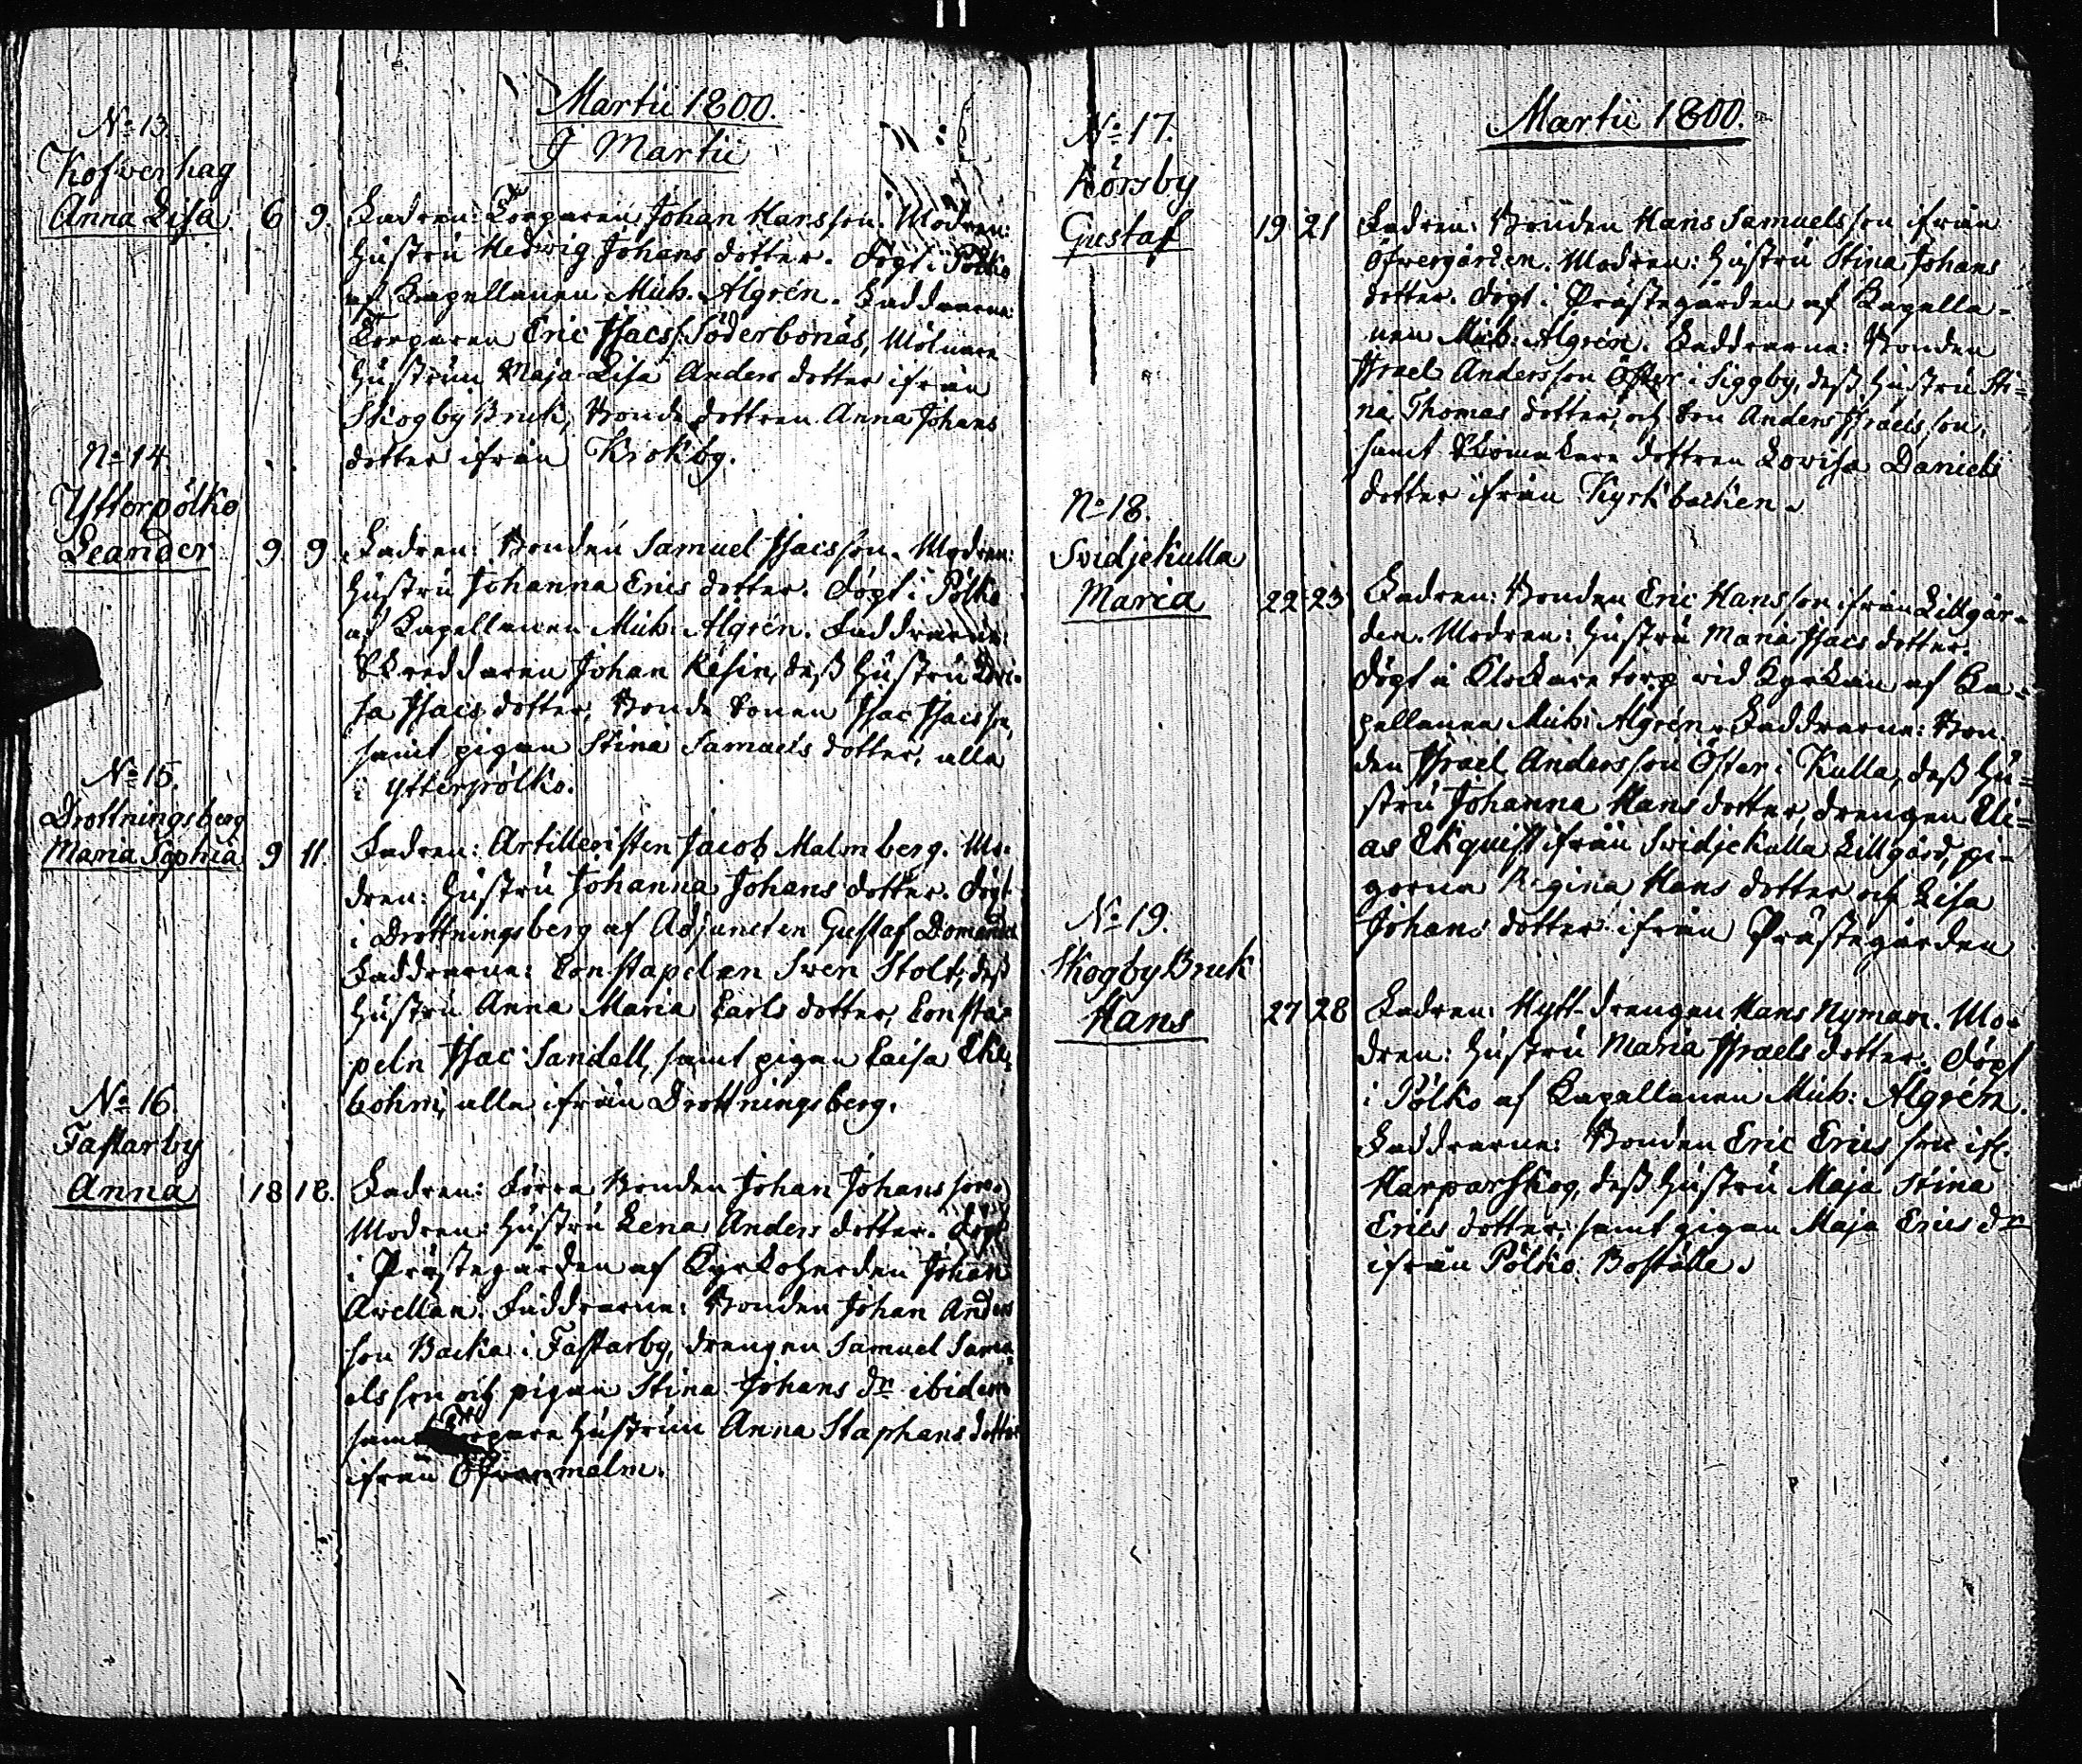 Martii 1800.
J Martii
No 13.
Kofverhag
Anna Lisa. 6 9.
Fadren: Torparen Johan Hansson. Modren:
hustru Hedwig Johans dotter. Döpt i Pölko
af Kapellanen Mich: Algrén. Faddrarne:
Torparen Eric Isacs: Söderbonäs, Mölnare
hustrun Maja Lisa Anders dotter ifrån
Skogby Bruk, Bonde dottren Anna Johans
dotter ifrån Krokby.
No 14
Ytterpölko
Leander 9. 9.
Fadren: Bonden Samuel Isacsson. Modren:
hustru Johanna Erics dotter. Döpt i Pölko
af Kapellanen Mich: Algrén. Faddrarne:
Skreddaren Johan Resin, dess hustru Lovi-
sa Isacs dotter, Bonde Sonen Isac Isacsson,
samt pigan Stina Samuels dotter, alla
i Ytterpölko.
No 15.
Drottningsberg
Maria Sophia 9 11.
Fadren: Artilleristen Jacob Malmberg. Mo-
dren: hustru Johanna Johans dotter. Döpt
i Drottningsberg af Adjuncten Gustaf Domander
Faddrarne: Constapelen Swen Stolt, dess
hustru Anna Maria Carls dotter, Consta-
peln Isac Sandell, samt pigan Caisa Ek-
bohm, alla ifrån Drottningsberg.
No 16.
Fastarby
Anna 18 18.
Fadren: Förra Bonden Johan Johansson.
Modren: hustru Lena Anders dotter. Döpt
i Prästegården af Kyrkoherden Johan
Avellan. Faddrarne: Bonden Johan Anders
son Backa i Fastarby, drengen Samuel Samu-
elsson och pigan Stina Johans dr ibidem
samt Torpare hustrun Anna Staphans dotter
ifrån Öfvanmalm.
Martii 1800.
No 17.
Körsby
Gustaf 19 21
Fadren: Bonden Hans Samuelsson ifrån
Öfvergården. Modren: hustru Stina Johans
dotter. Döpt i Prästegården af Kapella-
nen Mich: Algrén. Faddrarne: Bonden
Israel Andersson Öster i Siggby, dess hustru Sti-
na Thomas dotter, och Son Anders Israelsson,
samt Skomakare dottren Lovisa Daniels
dotter ifrån Kyrkbacken.
No 18.
Svidjekulla
Maria 22 23
Fadren: Bonden Eric Hansson ifrån Lillgår-
den. Modren: hustru Maria Isacs dotter.
Döpt i Klockaretorp vid Kyrkan af Ka-
pellanen Mich: Algrén. Faddrarne: Bon-
den Israel Andersson Öster i Kulla, dess hu-
stru Johanna Hans dotter, drengen Eli-
as Ekquist ifrån Svidjekulla Lillgård, pi-
gorna Regina Hans dotter och Lisa
Johans dotter ifrån Prästegården
No 19.
Skogby Bruk
Hans 27 28
Fadren: Hytt-drengen Hans Nyman. Mo-
dren: hustru Maria Israels dotter. Döpt
i Pölko af Kapellanen Mich: Algrén.
Faddrarne: Bonden Eric Ericsson if:
Harparskog, dess hustru Maja Stina
Erics dotter, samt pigan Maja Erics dr
ifrån Pölko Boställe.